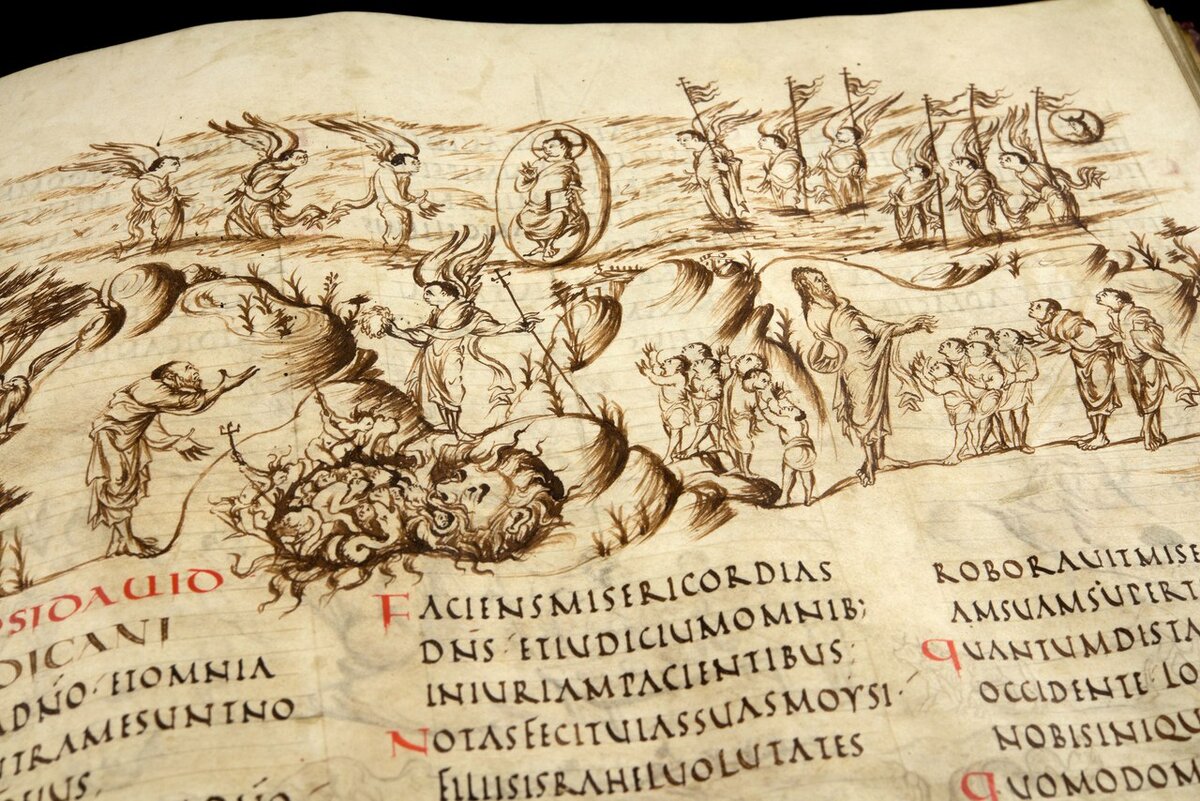 PSIDAUID
DICANI
ADNO·ETOMNIA
TRAMESUNTNO
SIUS.
FACIENSMISERICORDIAS
DNS·ETIUDICIUMOMNIB;
INIURIAMPACIENTIBUS:
NOTASFECITUIASSUASMOYSI·
FILIISISRAHELUOLUTATES
ROBORAUITMISE
AMSUAMSUPERT
QUANTUMDISTA
OCCIDENTE·LO
NOBISINIQU
QUOMODOM